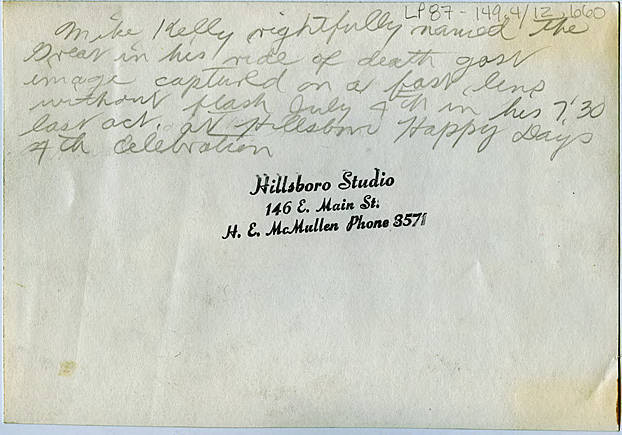 LP87-149.4/12.1660
Mike Kelly rightfully named the
Great in his ride of death gost
image captured on a fast lens
without flash July 4th in his 7:30
last act. at Hillsboro Happy Days
4th Celebration
Hillsboro Studio
146 E. Main St.
H. E. McMullen Phone 3571